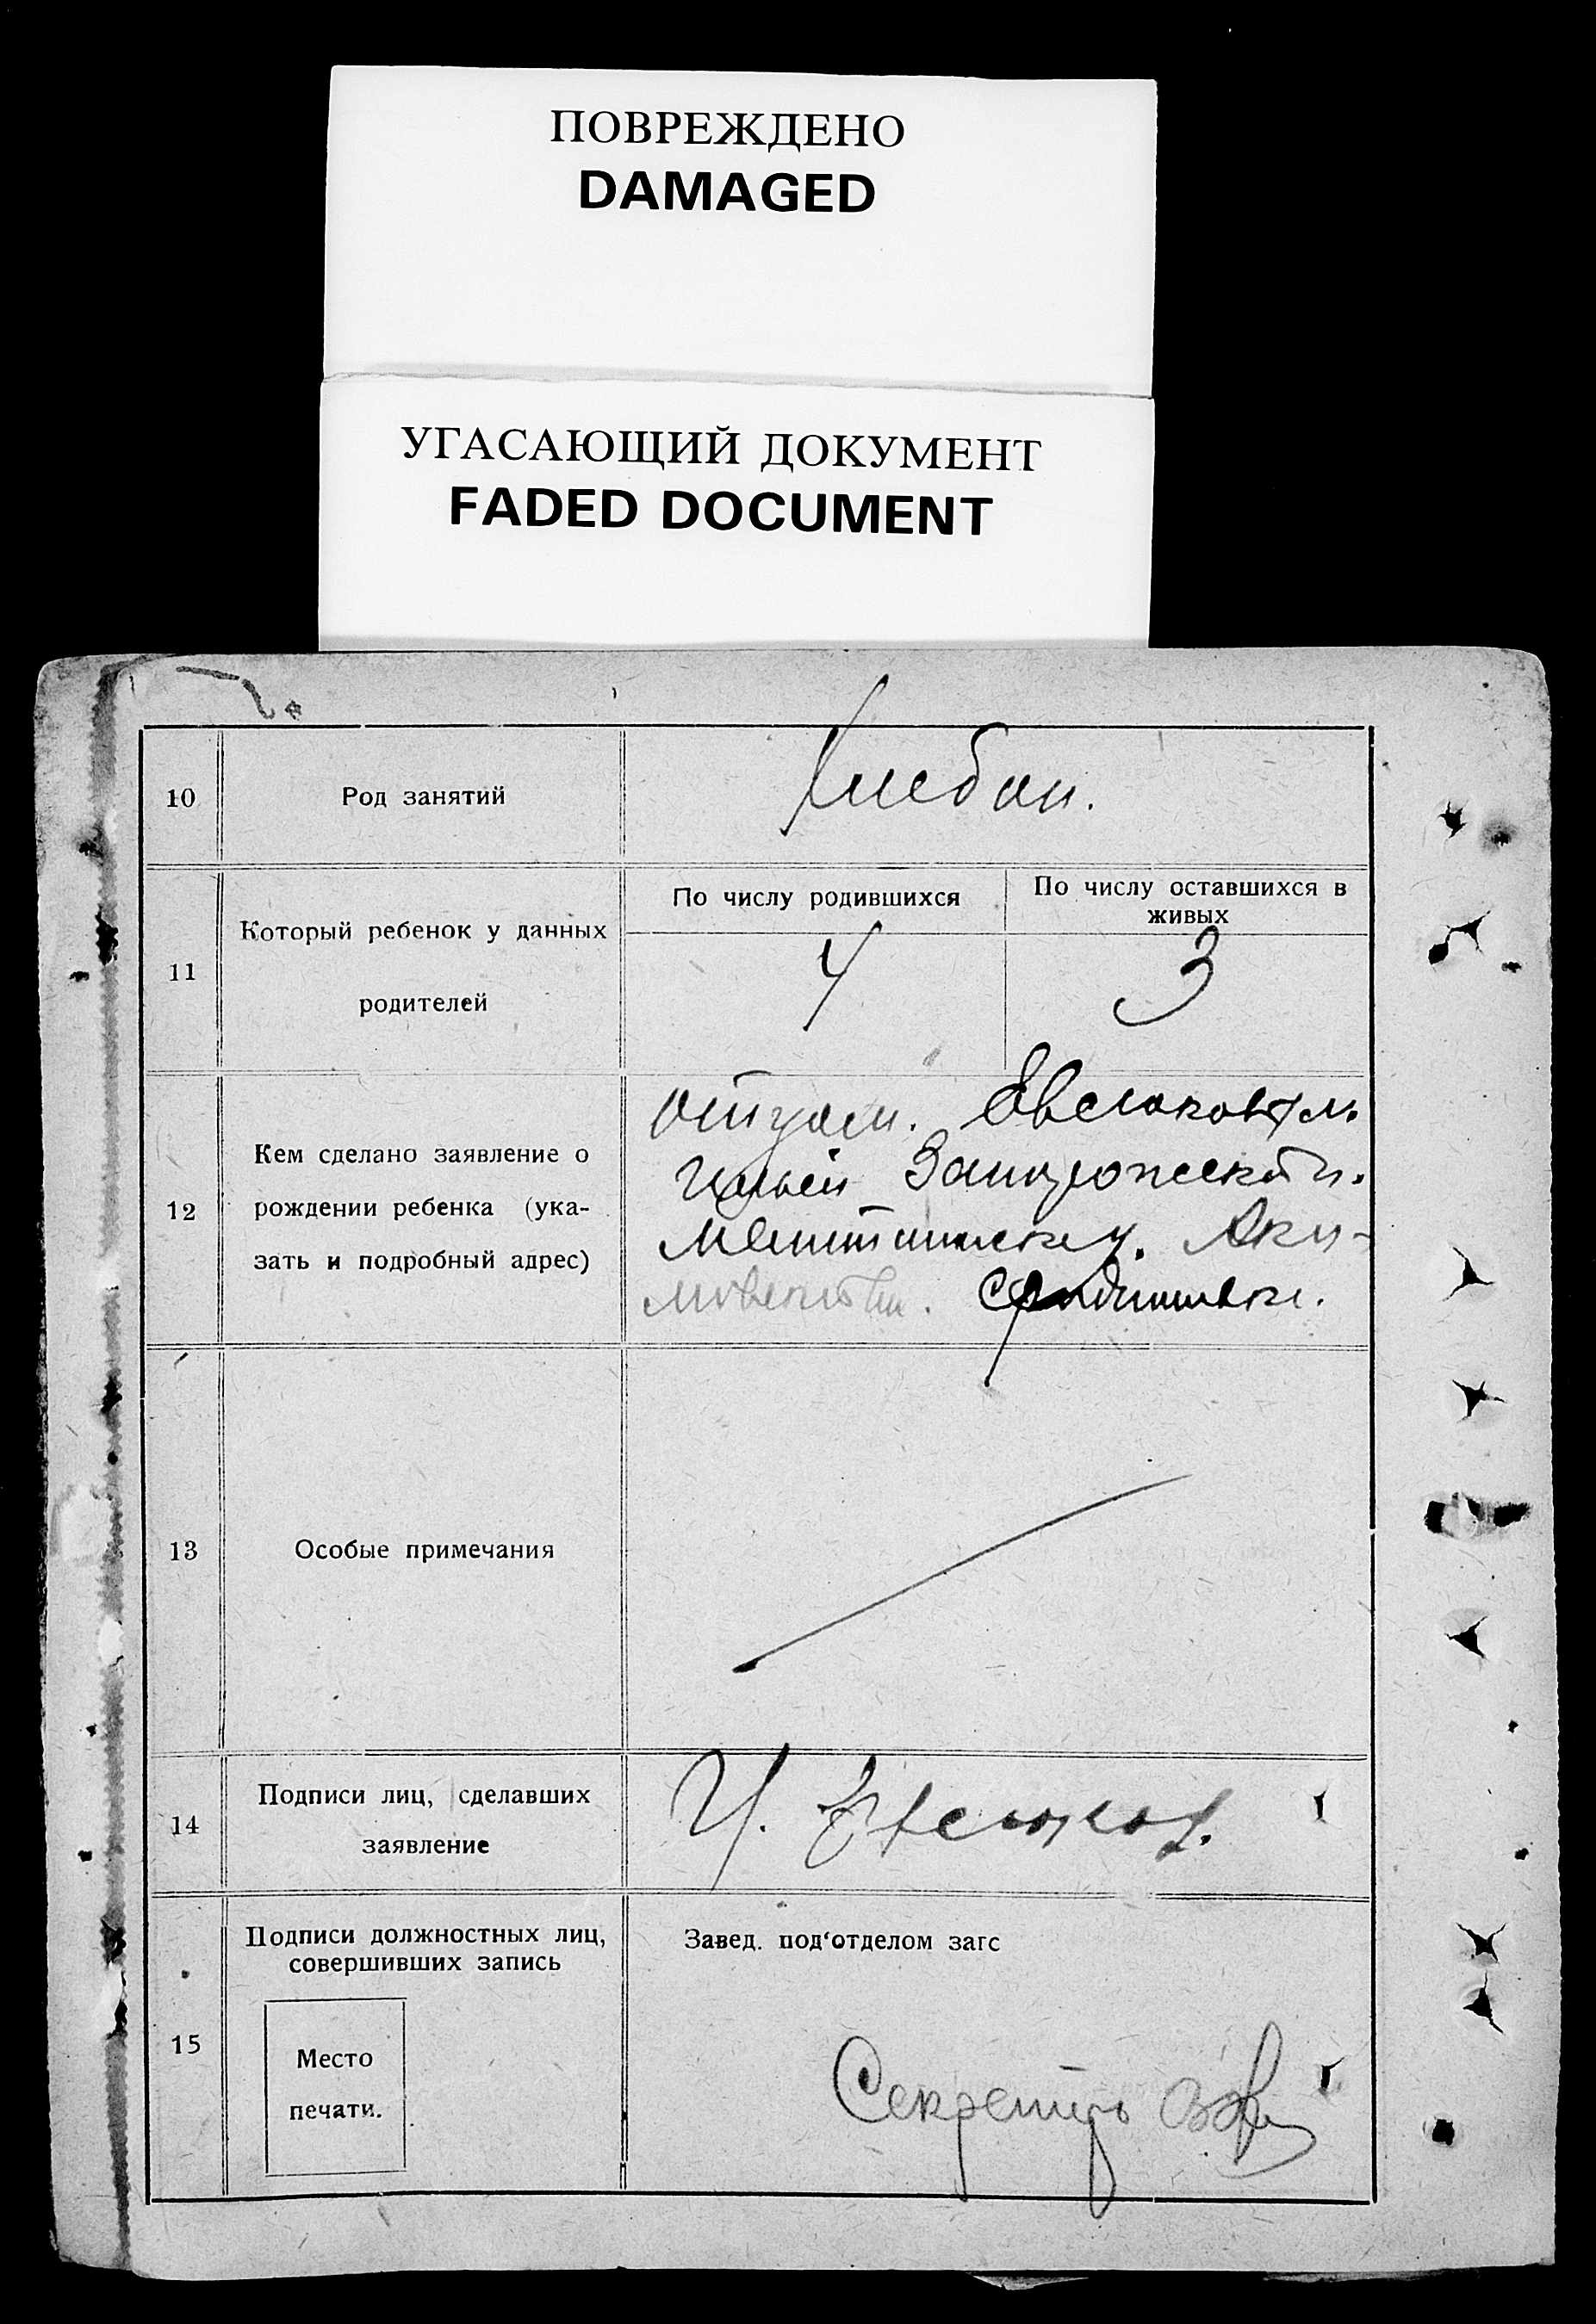 ПОВРЕЖДЕНО
DAMAGED
УГАСАЮЩИЙ ДОКУМЕНТ
FADED DOCUMENT
10
Род занятий
Хлебоп.
11
Который ребенок у данных
родителей
По числу родившихся
4
По числу оставшихся в
живых
3
12
Кем сделано заявление о
рождении ребенка (ука-
зать и подробный адрес)
отцом. Евсюковым
Ильей Запорожской
Мелитопольск. Аки-
мовской.
13
Особые примечания
14
Подписи лиц, сделавших
заявление
И. Евсюков.
15
Подписи должностных лиц,
совершивших запись
Место
печати.
Завед. под'отделом загс
Секретарь